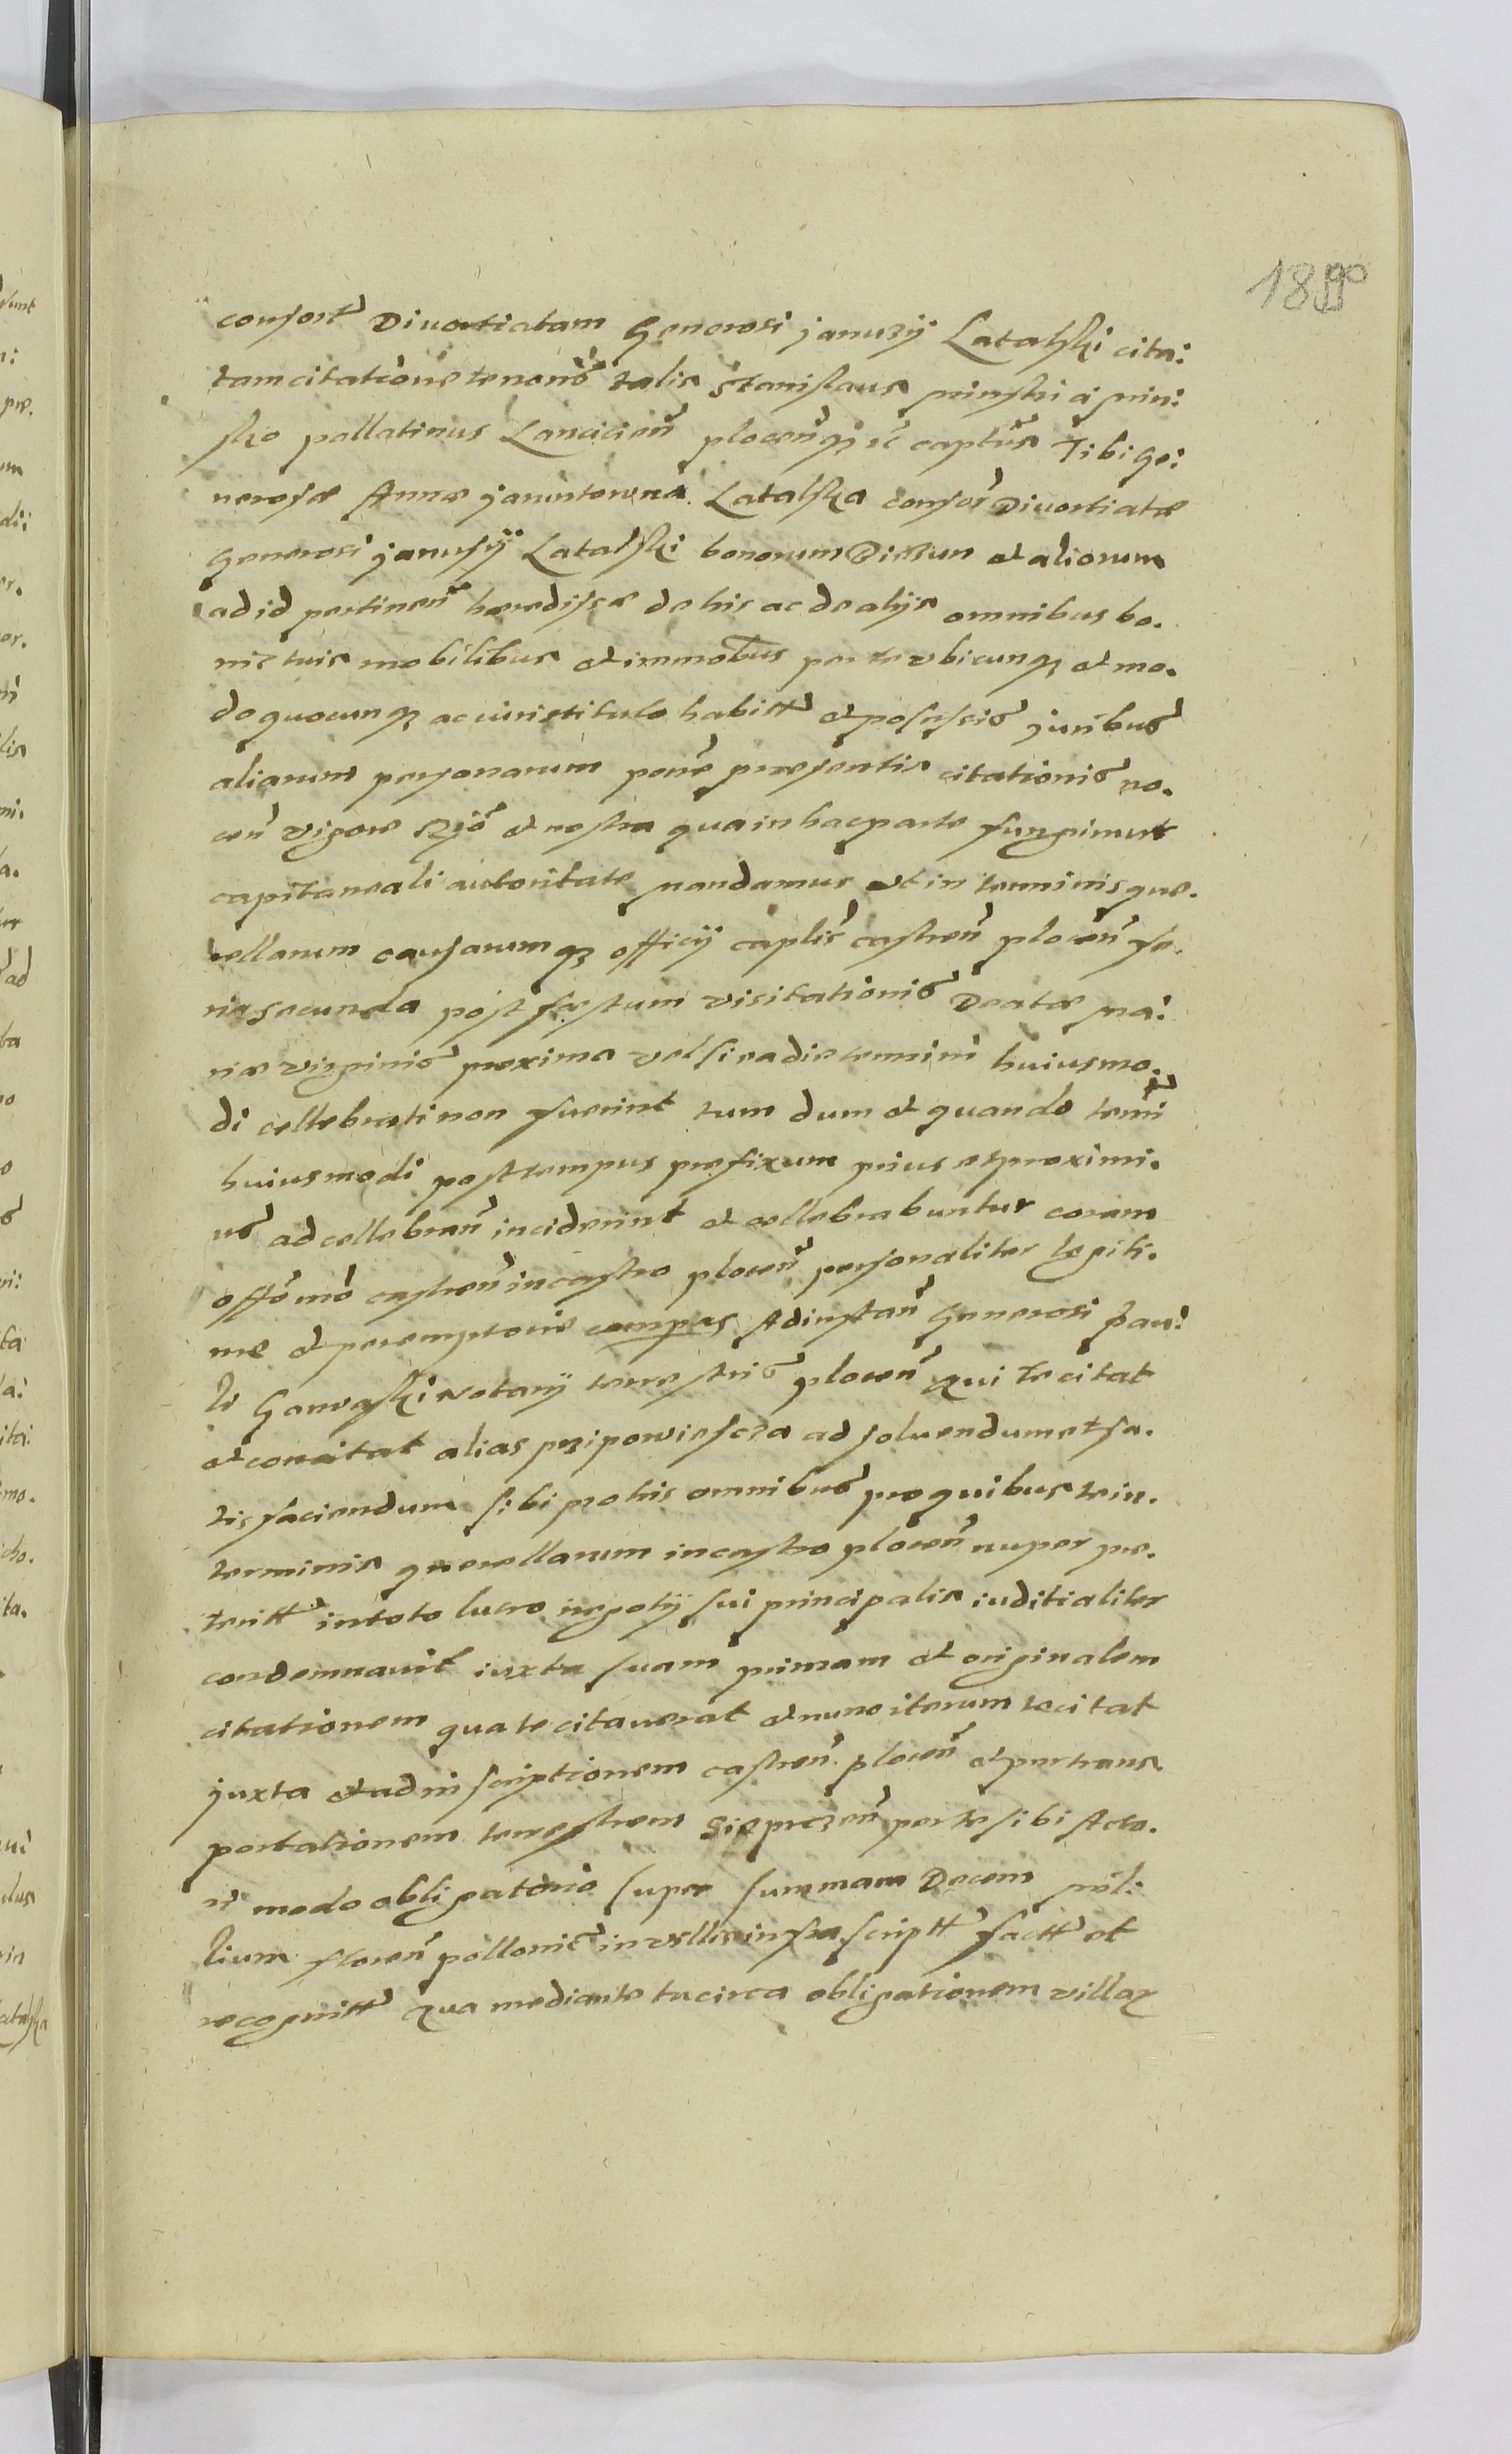 consort Divortiatam Generosi Januzÿ Latalski cita:
tam citatione tenoris talis Stanislaus minski á min:
sko pallatinus Lancicien plocenqȝ capttus Tibi Ge:
nerosæ Annæ Januntowna Latalska consor Divortiatæ
Generosi Janusÿ Latalski bonorum et aliorum
ad id pertinen hæredissæ de his ac de alijs omnibus bo.
nis tuis mobilibus et immobus per te vbicunqȝ et mo.
do quocunqȝ ac iuris titulo habitt et possessis juribus
aliarum personarum pone præsentis citationis no.
cen vigore Rgió et nostra qua in hac parte fungimur
capitaneali autoritate mandamus ut in terminis que.
rellarum causarumqȝ officij caplis castren plocen fe.
ria secunda post festum visitationis Beatæ Ma:
riæ virginis proxima vel si ea die termini huiusmo.
di cellebrati non fuerint tum dum et quando termi
huiusmodi post tempus prefixum prius et proximi.
us ad cellebran inciderint et cellebrabuntur coram
offó nró castren in castro plocen personaliter legiti.
me et peremptorie compas Ad instan Generosi Pau:
li Garwaski notarij terrestris plocen qui te citat
et concitat alias przipowiescza ad soluendum et sa.
tisfaciendum sibi pro his omnibus pro quibus te in.
terminis querellarum in castro plocen nuper pre.
teritt in toto lucro negotÿ sui principalis iuditialiter
condemnauit iuxta suam primam et originalem
citationem qua te citauerat et nunc iterum te citat
juxta et ad inscriptionem castren plocen et per trans
portationem terrestrem Sieprczen per te sibi Acto.
ri modo obligatorio super summam Decem mil:
lium floren pollonic in villis infra scriptt factt et
recognitt Qua mediante tu circa obligationem villarȝ